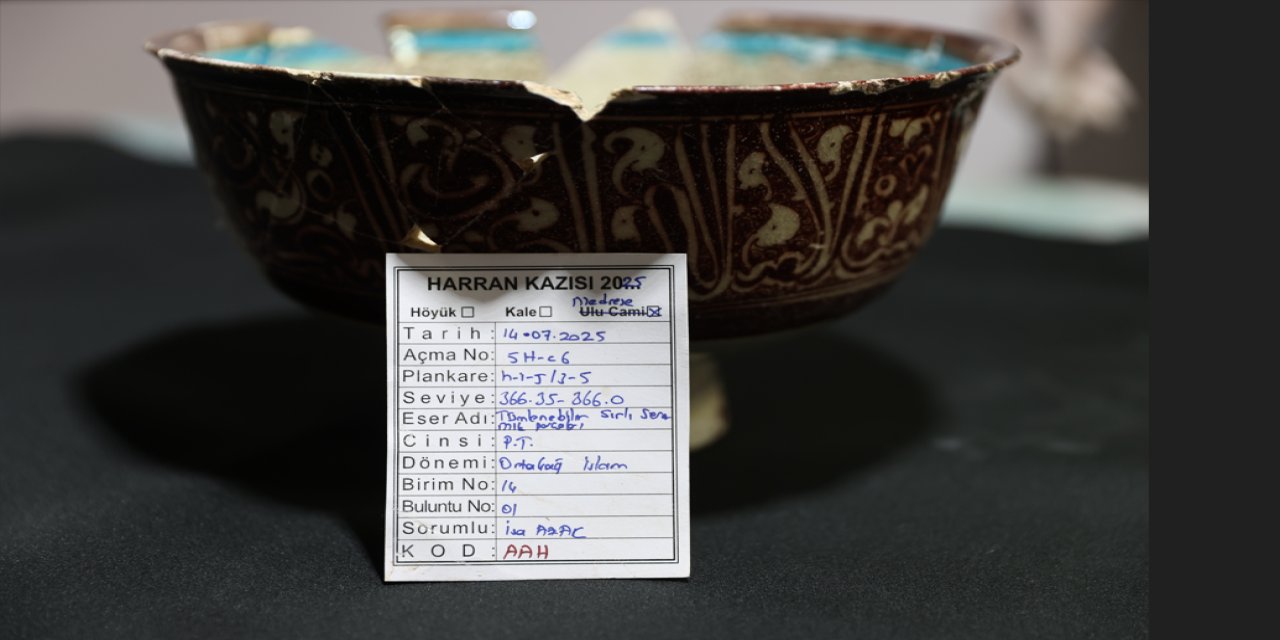 HARRAN KAZISI 2025
Medrese
Höyük Kale Ulu Cami
Tarih: 14.07.2025
Açma No: 5H-c6
Plankare: h-ı-J/3-5
Seviye: 366.35-366.0
Eser Adı: Tümlenebilir Sırlı Sera
mik parçası
Cinsi: P.T.
Dönemi: Ortaçağ İslam
Birim No: 14
Buluntu No: 01
Sorumlu: İsa
KOD: AAH